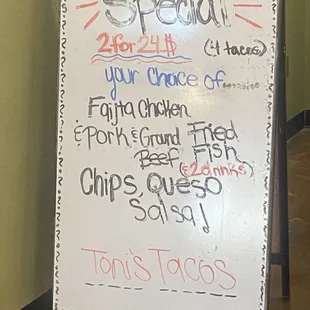 Special!
2 for 24$ (4 tacos)
your choice of........
Fajita Chicken
& Pork & Ground Fried
Beef Fish
(& 2 drinks)
Chips, Queso
Salsa!
Toni's Tacos